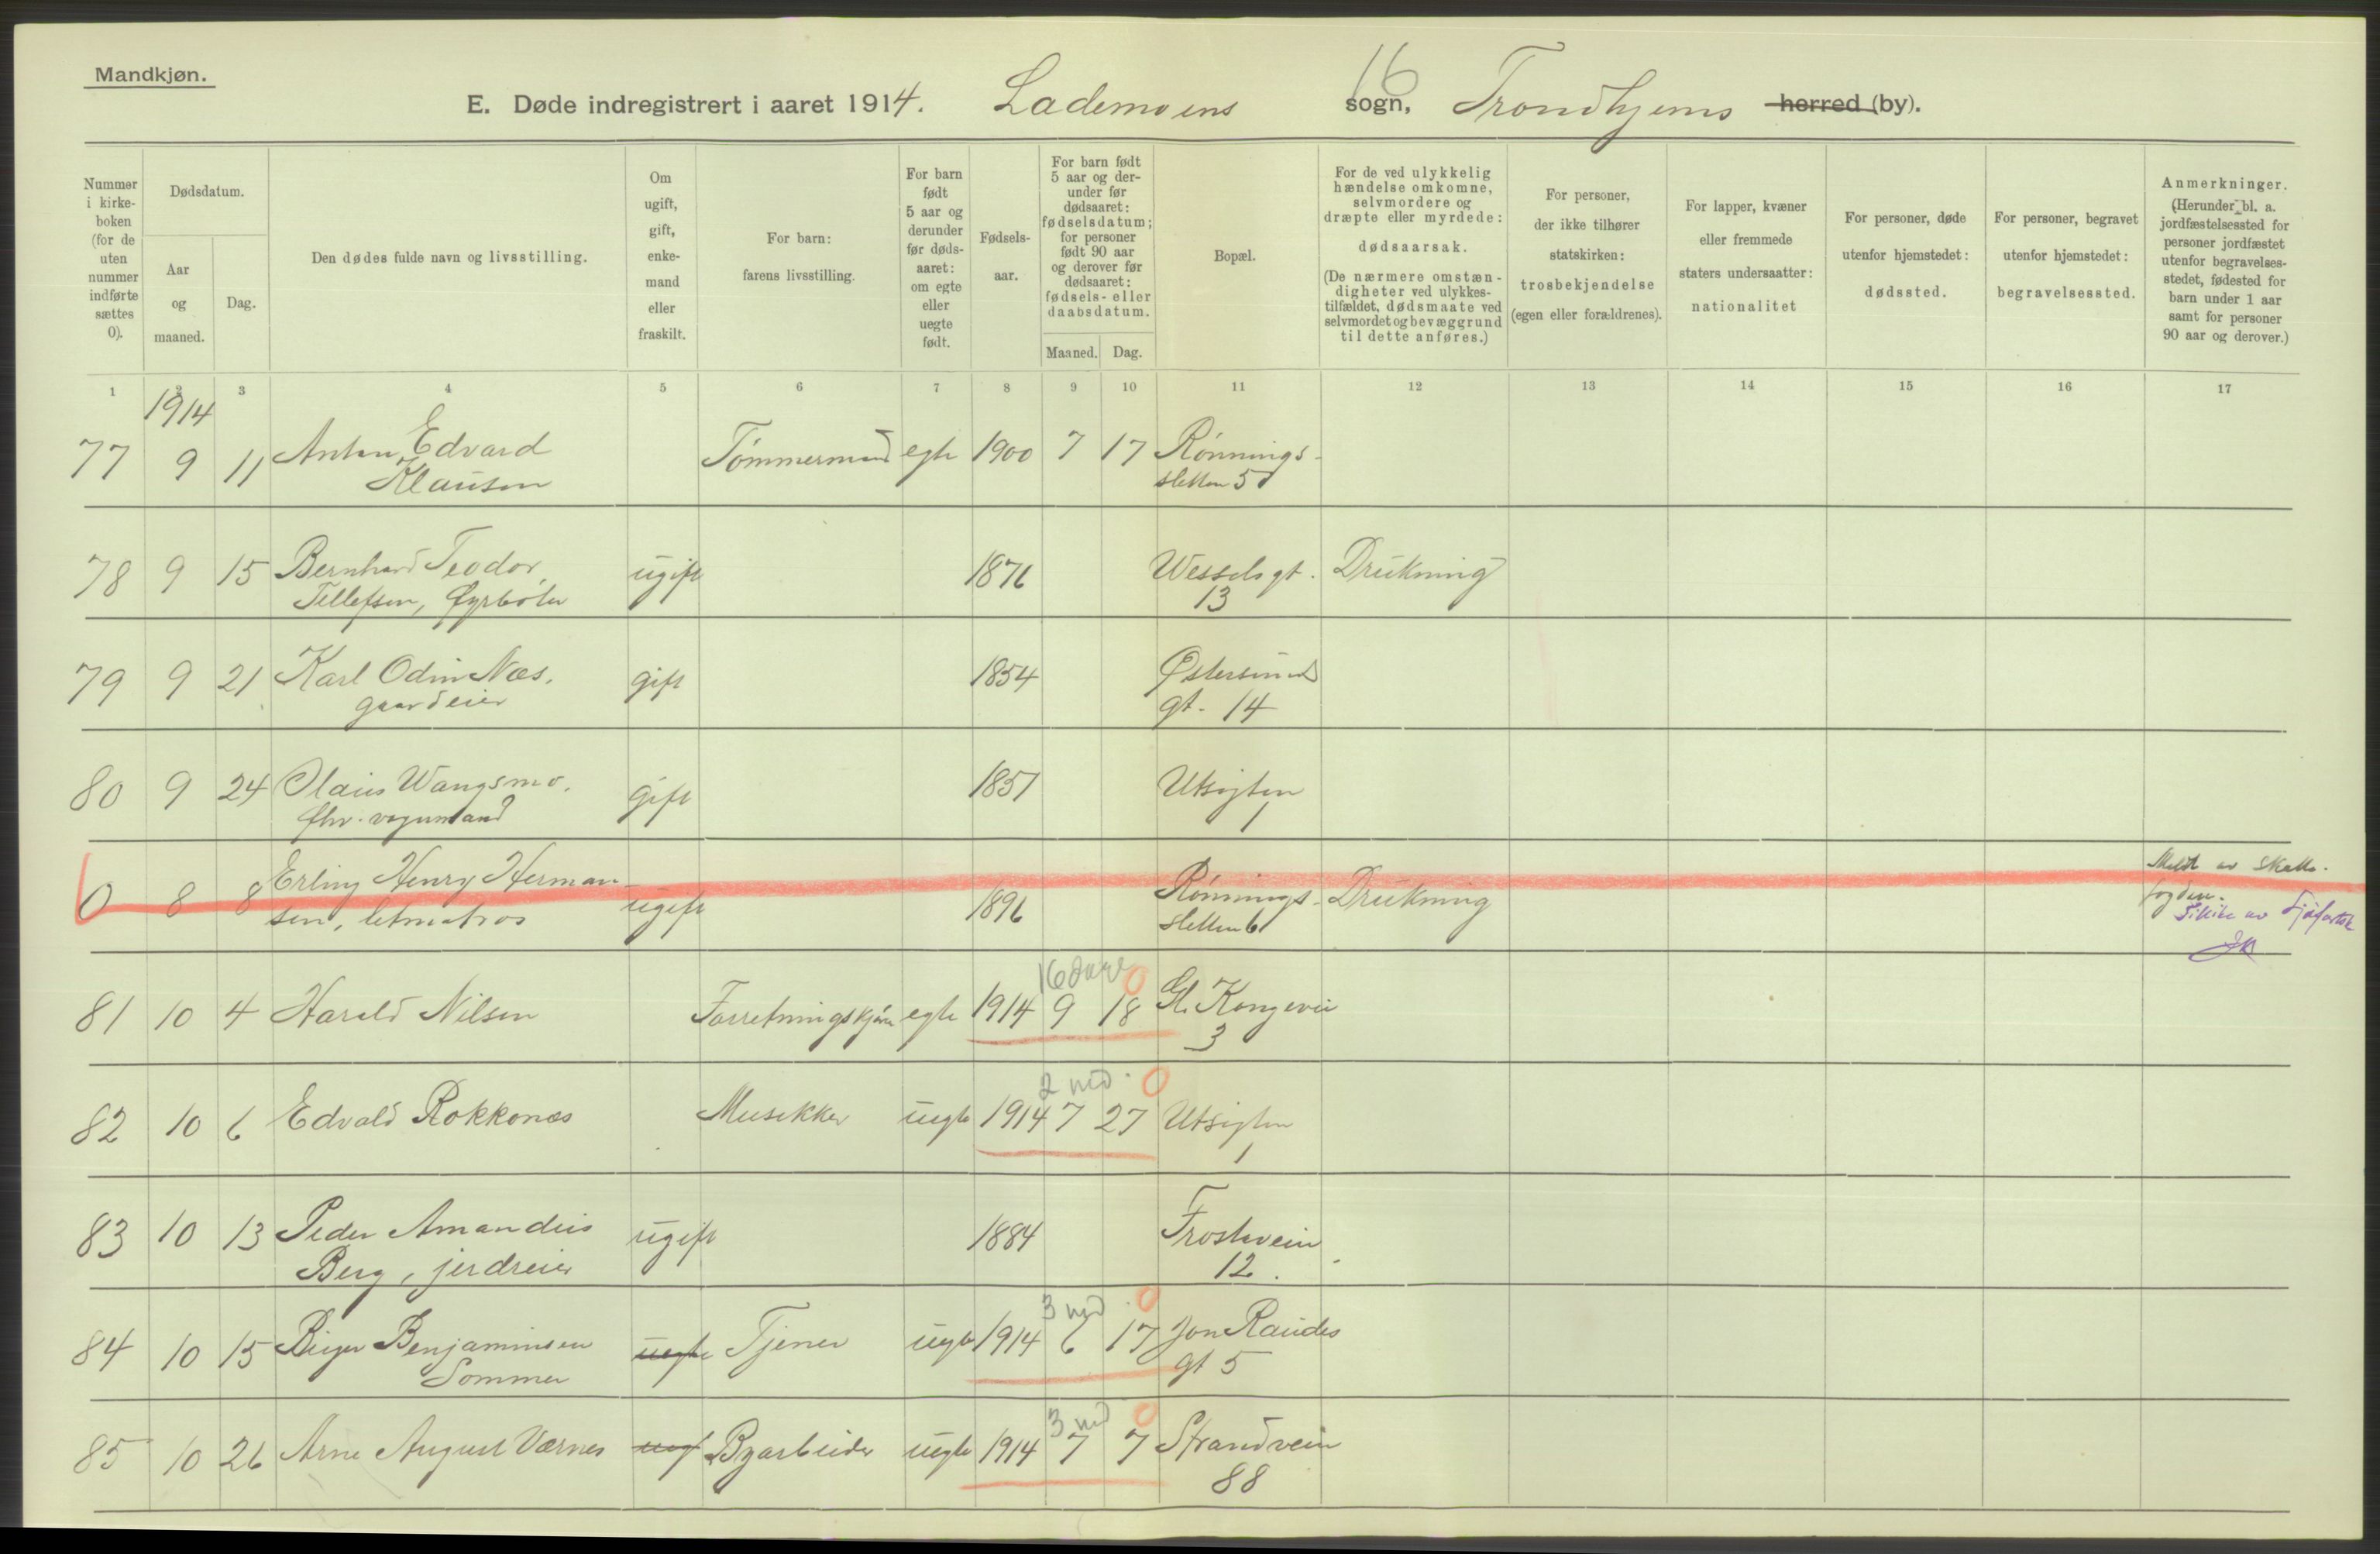 Mandkjøn.
16
E. Døde indregistrert i aaret 1914. Lademoens sogn, Trondhjems herred (by).
Nummer i kirkeboken (for de uten nummer indførte sættes 0).
Dødsdatum.
Aar og maaned.
Dag.
Den dødes fulde navn og livsstilling.
Om ugift, gift, enkemand eller fraskilt.
For barn: farens livsstilling.
For barn født 5 aar og derunder før dødsaaret: om egte eller uegte født.
Fødselsaar.
For barn født 5 aar og derunder før dødsaaret: fødselsdatum; for personer født 90 aar og derover før dødsaaret: fødsels- eller daabsdatum.
Maaned. Dag.
Bopæl.
For de ved ulykkelig hændelse omkomne, selvmordere og dræpte eller myrdede: dødsaarsak. (De nærmere omstændigheter ved ulykkestilfældet, dødsmaate ved selvmordet og bevæggrund til dette anføres.)
For personer, der ikke tilhører statskirken: trosbekjendelse (egen eller forældrenes).
For lapper, kvæner eller fremmede staters undersaatter: nationalitet
For personer, døde utenfor hjemstedet: dødssted.
For personer, begravet utenfor hjemstedet: begravelsessted.
Anmerkninger. (Herunder bl. a. jordfæstelsessted for personer jordfæstet utenfor begravelsesstedet, fødested for barn under 1 aar samt for personer 90 aar og derover.)
1 2 3 4 5 6 7 8 9 10 11 12 13 14 15 16 17
1914
77 9 11 Anton Edvard Klausen Tømmermand egte 1900 7 17 Rønningsletten 5
78 9 15 Bernhard Teodor Tellefsen, fyrbøter ugift 1876 Wessels gt. 13 Drukning
79 9 21 Karl Odin Næs, gaardeier gift 1854 Østersunds gt. 14
80 9 24 Olaus Wangsmo, fhv. vognmand gift 1851 Utsigten 1
0 8 8 Erling Henry Hermansen, letmatros ugift 1896 Rønningsletten 6 Drukning Meldt av skattefogden.
16 dage 0
81 10 4 Harald Nilsen Forretningskjører egte 1914 9 18 Gl. Kongevei 3
2 md. 0
82 10 6 Edvald Rokkones Musikker uegte 1914 7 27 Utsigten 1
83 10 13 Peder Amandus Berg, jerdreier ugift 1884 Frostavein 12.
3 md. 0
84 10 15 Birger Benjaminsen Sommer uegte Tjener uegte 1914 6 17 Jon Raudes gt 5
3 md 0
85 10 26 Arne August Værnes Byarbeider uegte 1914 7 7 Strandvein 88